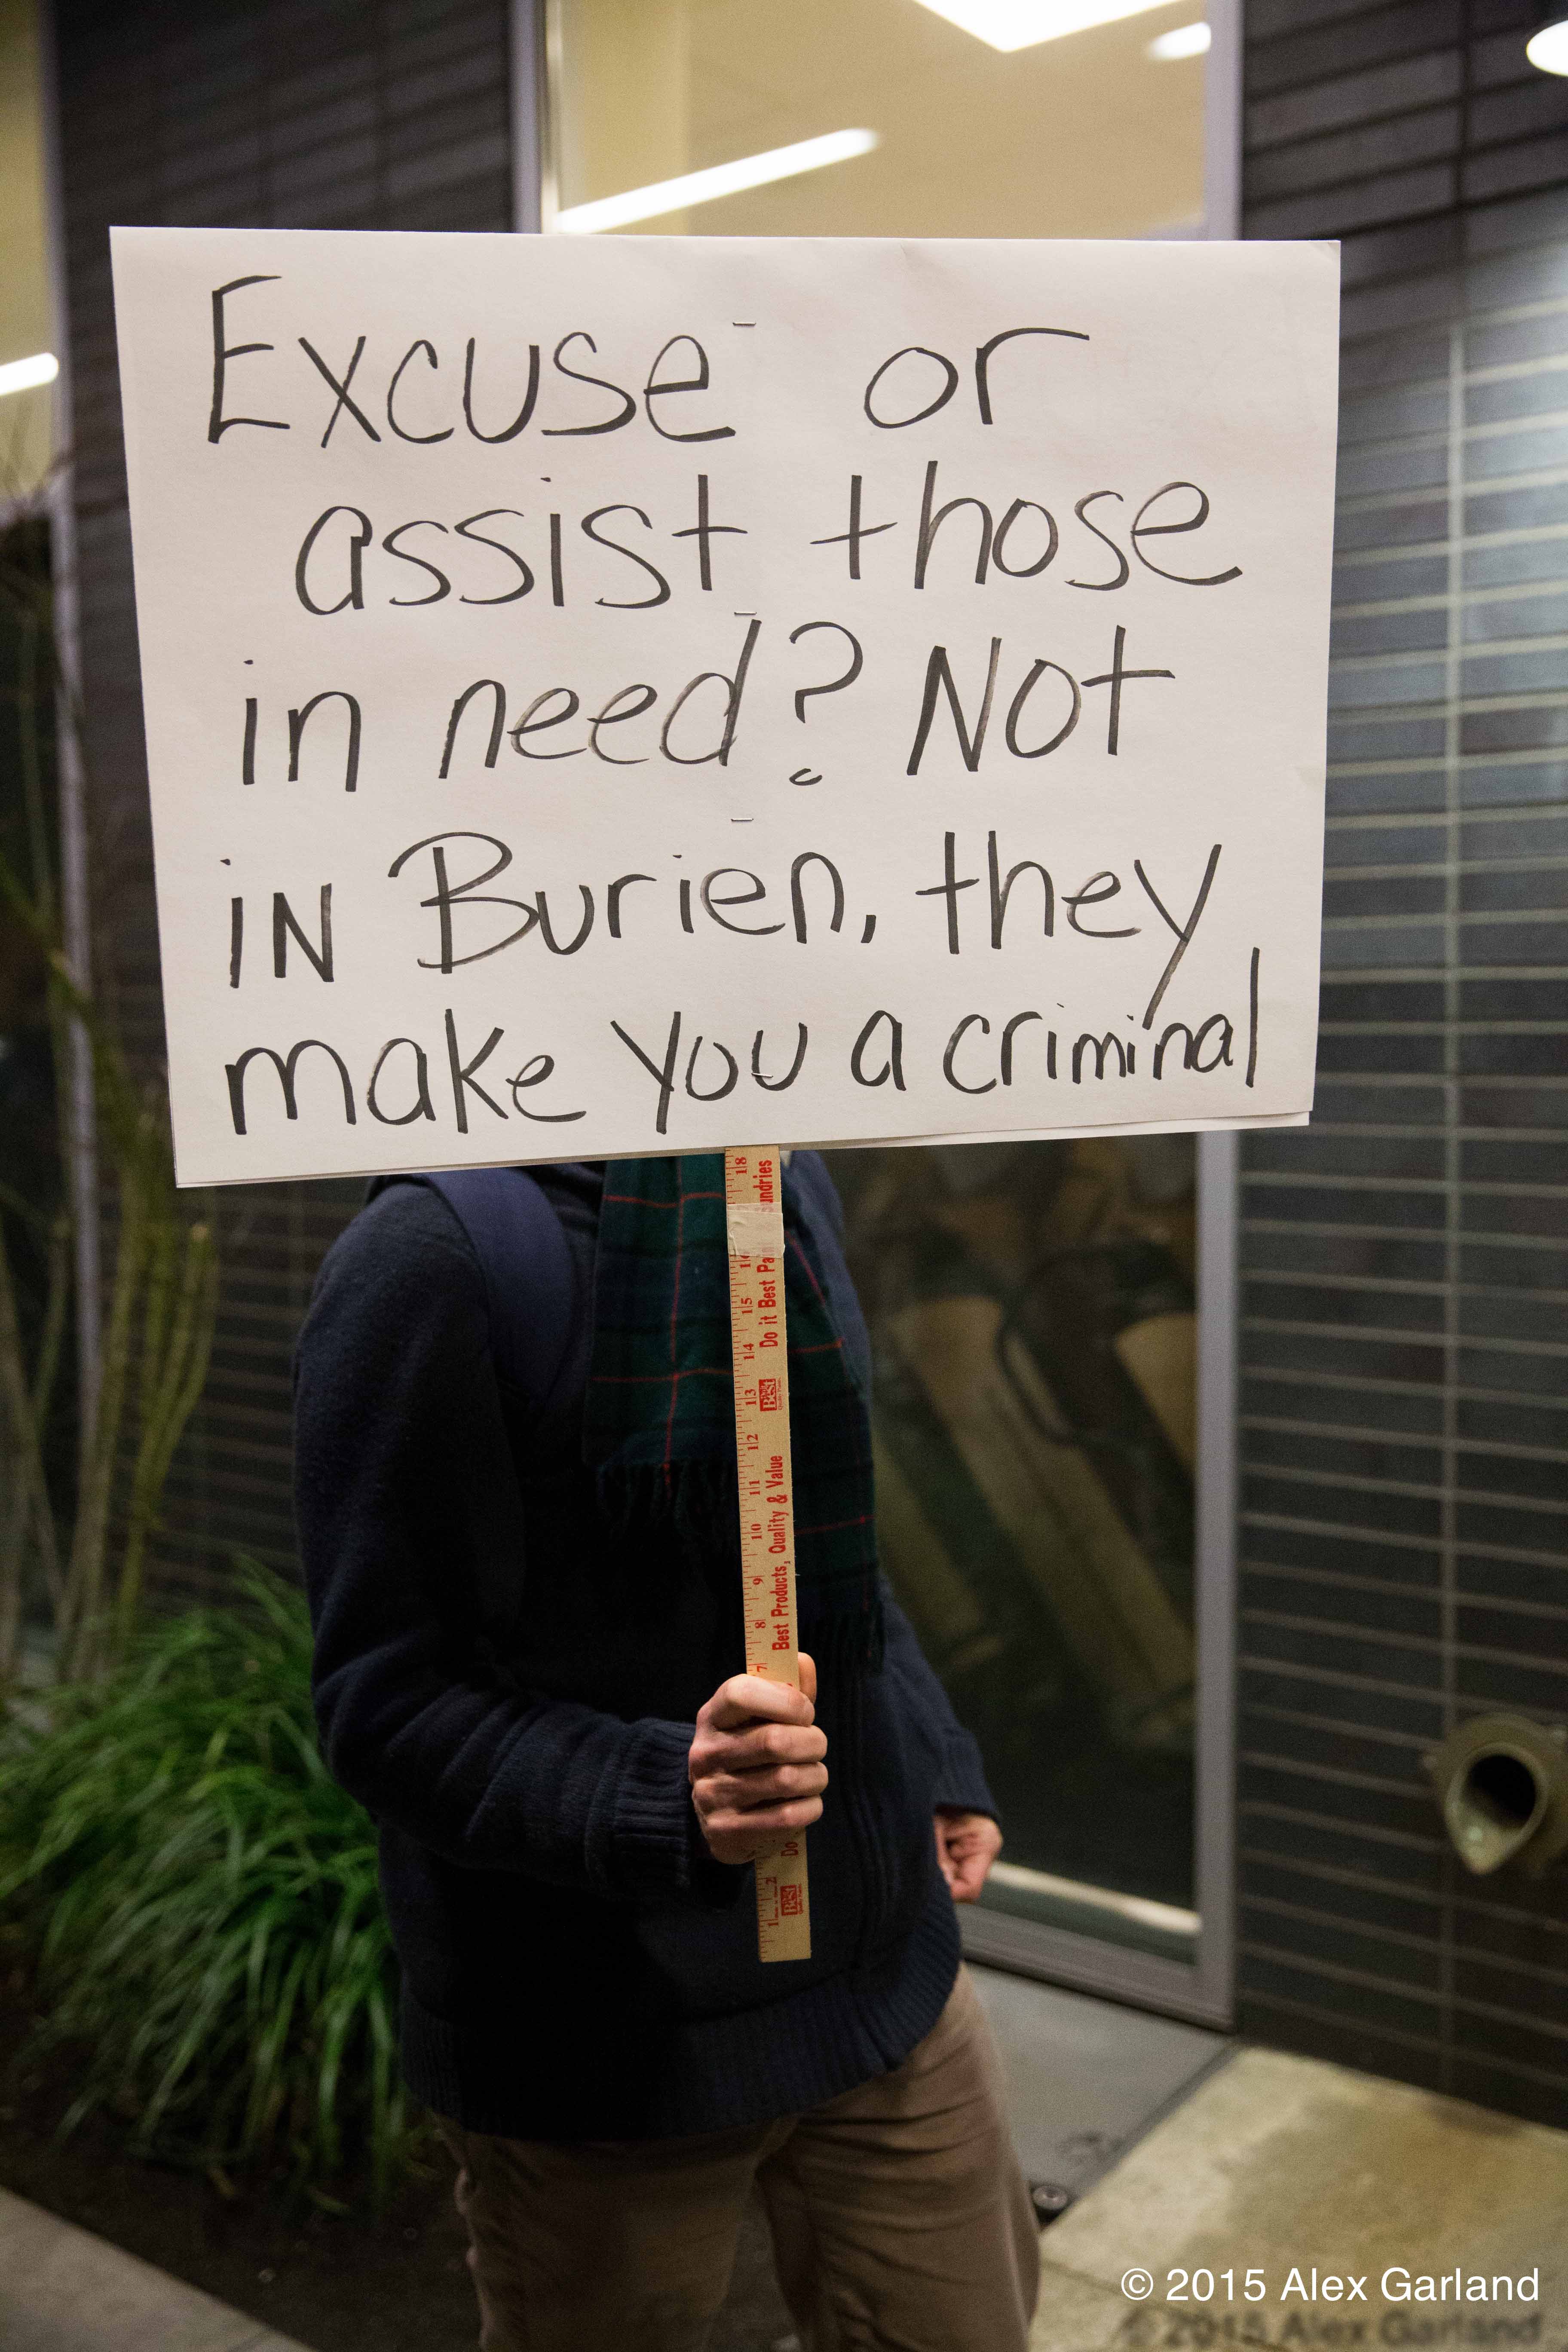 Excuse or
assist those
in need? Not
iN Burien, they
make you a criminal
18
undries
15
14
13
12
11
10
9
8
7
2
1
Do it Best Pa
Best
Best Products, Quality & Value
Do
Best
© 2015 Alex Garland
© 2015 Alex Garland